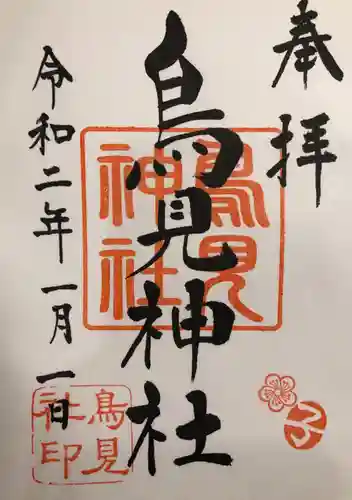 奉拝
鳥見神社
鳥見
神社
令和二年一月一日
鳥見
社印
子